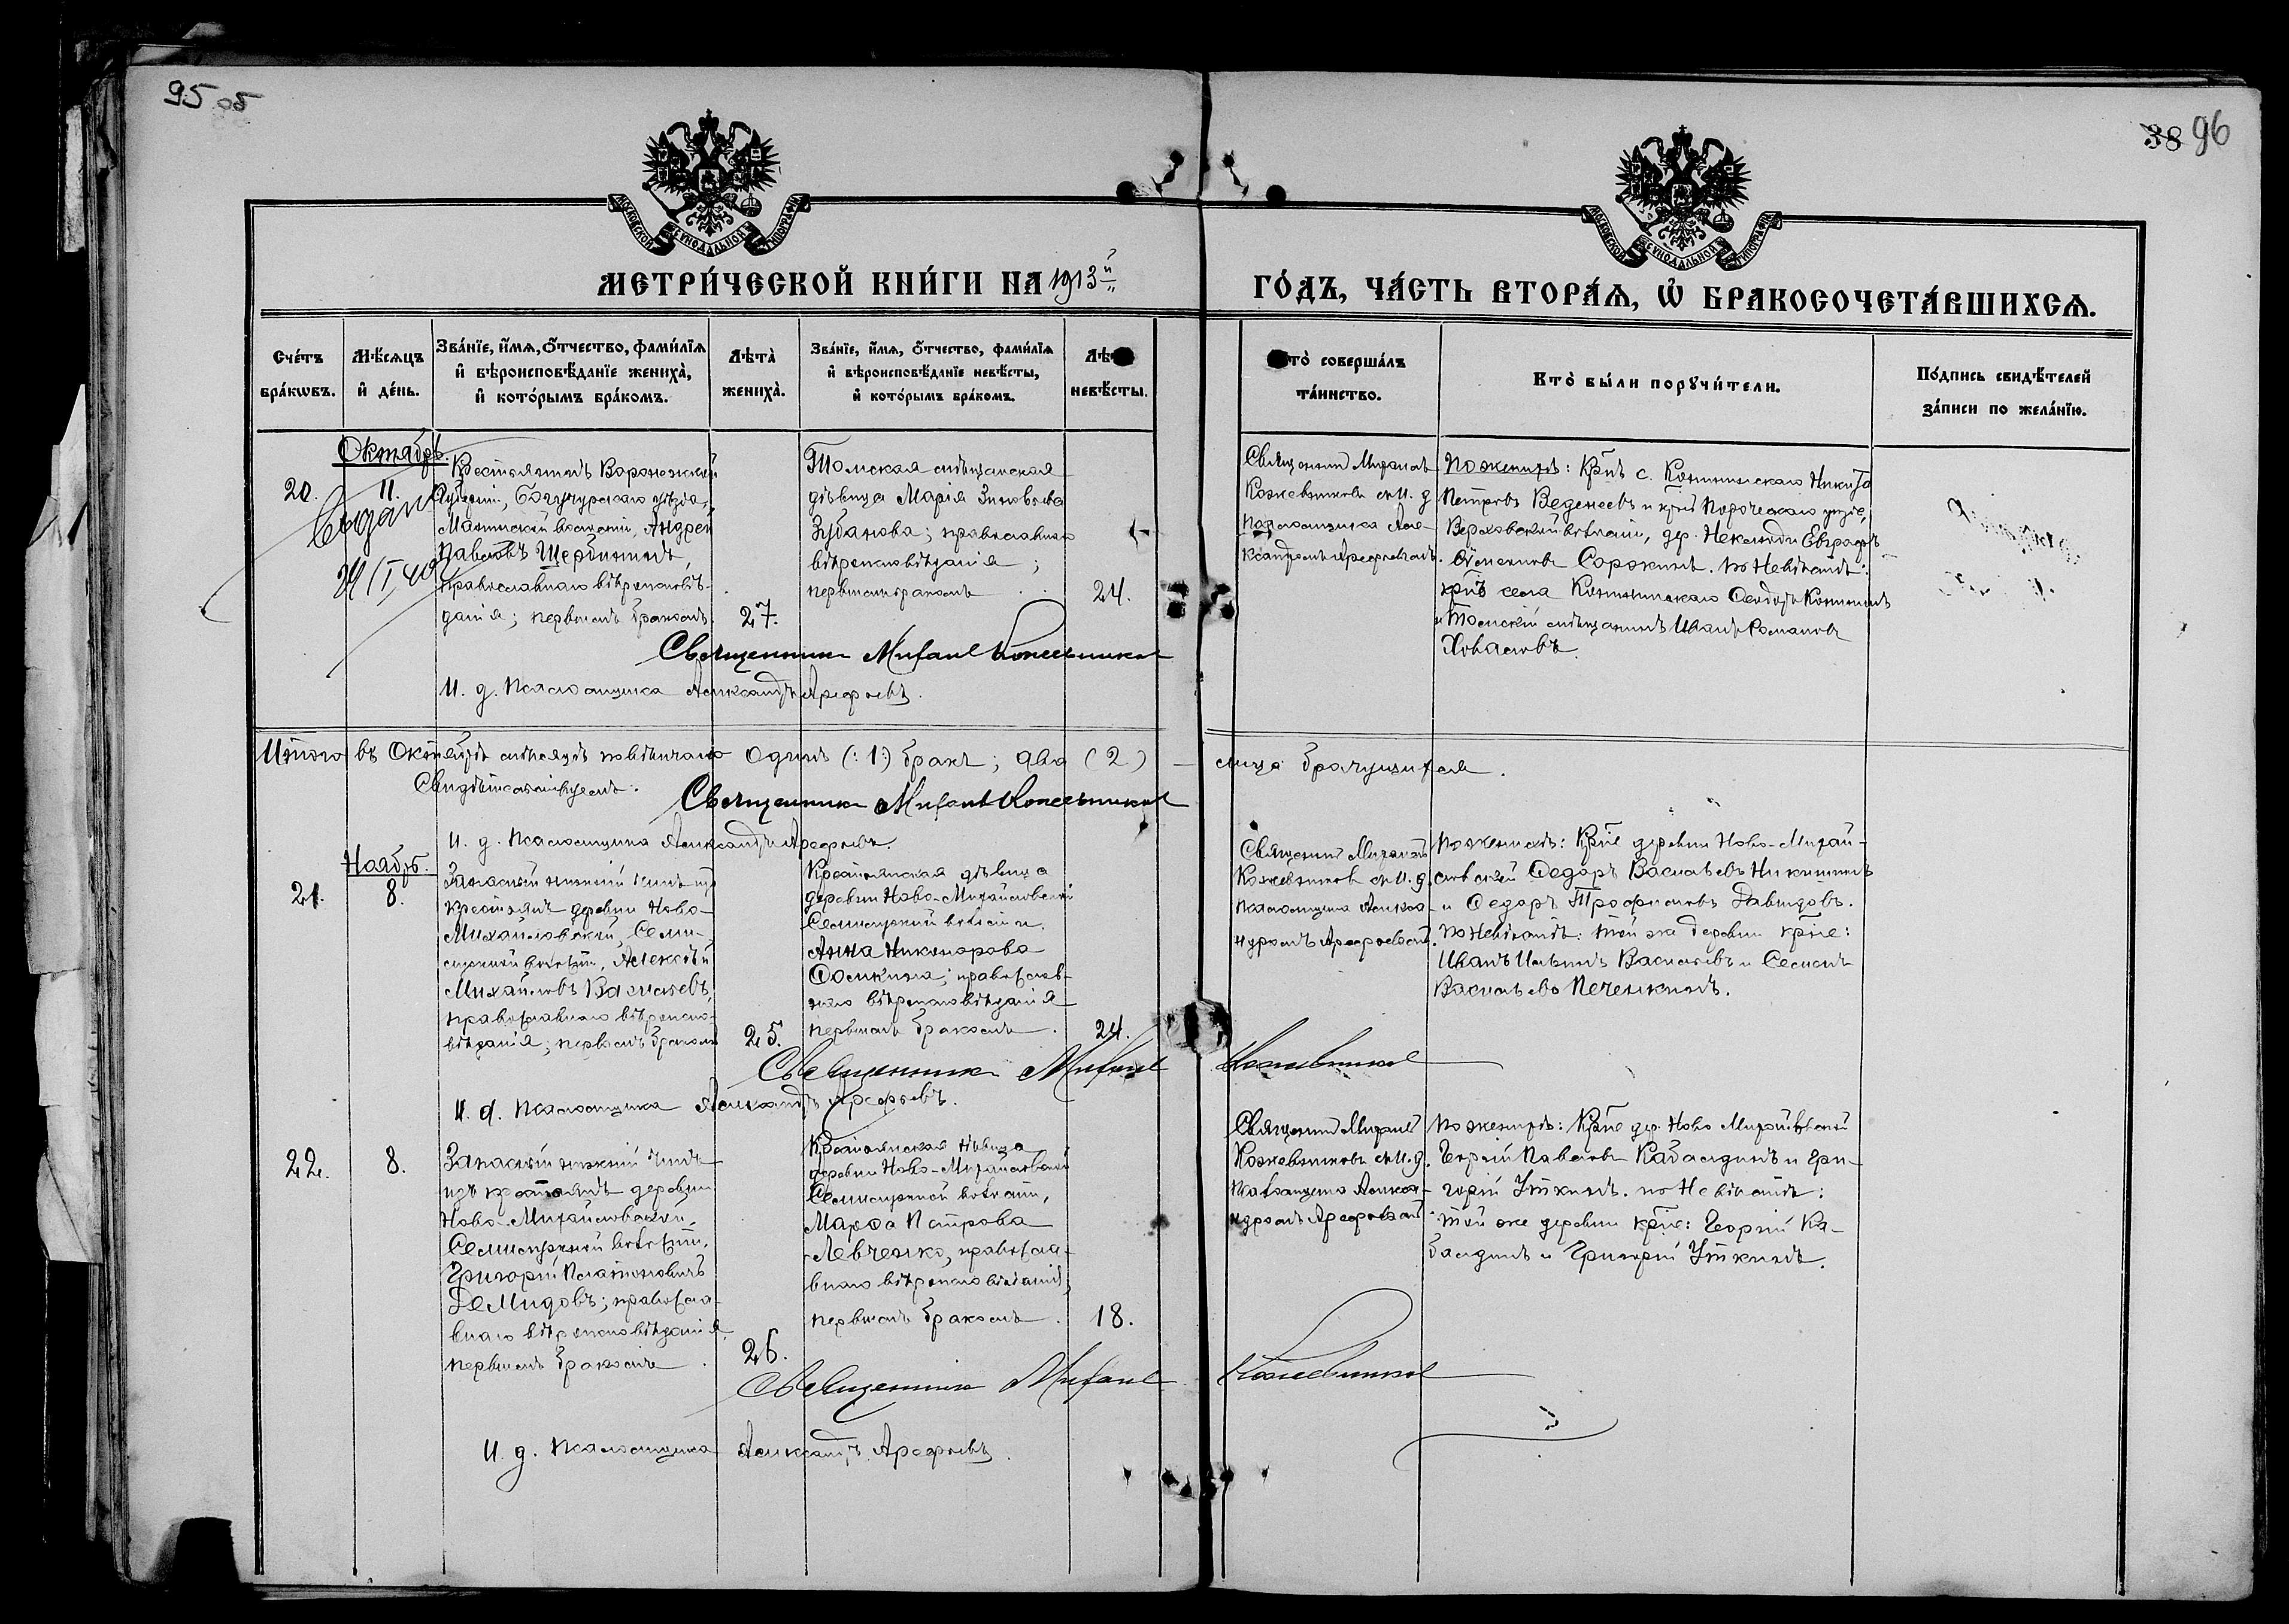 95 об
38 96
МОСКОВСКОЙ СѴНОДАЛЬНОЙ ТИПОГРАФІИ
МОСКОВСКОЙ СѴНОДАЛЬНОЙ ТИПОГРАФІИ
МЕТРИ́ЧЕСКОЙ КНИ́ГИ НА 1913й
ГО́ДЪ, ЧА́СТЬ ВТОРА́Ѧ, Ѡ҆ БРАКОСОЧЕТА́ВШИХСѦ.
Сче́тъ бра́кѡвъ.
Мѣ́сѧцъ и҆ де́нь.
Зва́нїе, и҆́мѧ, ѻ҆́тчество, фами́лїѧ и҆ вѣроисповѣ́данїе жениха̀, и҆ кото́рымъ бра́комъ.
Лѣта̀ жениха̀.
Зва́нїе, и҆́мѧ, ѻ҆́тчество, фами́лїѧ и҆ вѣроисповѣ́данїе невѣ́сты, и҆ кото́рымъ бра́комъ.
невѣ́сты.
соверша́лъ та́инство.
Кто̀ бы́ли порꙋчи́тели.
По́дпись свидѣ́телей за́писи по жела́нїю.
Октябрь.
20.
11.
Крестьянинъ Воронежской
Губерніи, Богучарскаго уѣзда,
Манинской волости, Андрей
Павловъ Щербининъ,
православнаго вѣроисповѣ-
данія; первымъ бракомъ.
27.
Томская мѣщанская
дѣвица Марія Зиновьева
Зубанова; православнаго
вѣроисповѣданія;
первымъ бракомъ
24.
Священникъ Михаилъ
Кожевниковъ съ И. д.
псаломщика Але-
ксандромъ Арефьевымъ.
По женихѣ: Кр-нъ с. Никита
Петровъ Веденеевъ и кр-нъ Порѣчскаго уѣзда,
Верховской волости, дер. Евграфъ
Сорокинъ. По Невѣстѣ:
кр-нъ села Феодоръ
и Томскій мѣщанинъ Иванъ Романовъ
Священникъ Михаилъ Кожевниковъ
И. д. Псаломщика Александръ Арефьевъ.
Итого въ Октябрѣ мѣсяцѣ повѣнчано Одинъ (:1:) бракъ; два (2) — лица брачущихся.
Свидѣтельствуемъ:
Священникъ Михаилъ Кожевниковъ
И. д. Псаломщика Александръ Арефьевъ.
Ноябрь.
21.
8.
Запасный нижній чинъ изъ
крестьянъ деревни Ново-
Михайловской, Семи-
лужной волости, Алексѣй
Михайловъ Васильевъ,
православнаго вѣроиспо-
вѣданія; первымъ бракомъ
25.
Крестьянская дѣвица
деревни Ново-Михайловской
Семилужной волости
Анна Никанорова
Фомкина; православ-
наго вѣроисповѣданія
первымъ бракомъ.
24.
Священникъ Михаилъ
Кожевниковъ съ И. д.
псаломщика Алекса-
ндромъ Арефьевымъ.
По женихѣ: Кр-не деревни Ново-Михай-
ловской Федоръ Васильевъ Никитинъ
и Федоръ Трофимовъ Давыдовъ.
По Невѣстѣ: той же деревни кр-не:
Иванъ Ильинъ Васильевъ и Семенъ
Васильевъ Печенкинъ.
Священникъ Михаилъ Кожевниковъ
И. д. Псаломщика Александръ Арефьевъ.
22.
8.
Запасный нижній чинъ
изъ крестьянъ деревни
Ново-Михайловской,
Семилужной волости,
Григорій Платоновичъ
Демидовъ; православ-
внаго вѣроисповѣданія,
первымъ бракомъ.
26.
Крестьянская дѣвица
деревни Ново-Михайловской
Семилужной волости,
Марфа Петрова
Левченко, правосла-
внаго вѣроисповѣданія;
первымъ бракомъ.
18.
Священникъ Михаилъ
Кожевниковъ съ И. д.
псаломщика Алекса-
ндромъ Арефьевымъ
По женихѣ: Кр-не дер. Ново Михайловской
Георгій Павловъ Кабалдинъ и Гри-
горій Уткинъ. по Невѣстѣ:
той же деревни кр-не: Георгій Ка-
балдинъ и Григорій Уткинъ.
Священникъ Михаилъ Кожевниковъ
И. д. Псаломщика Александръ Арефьевъ.